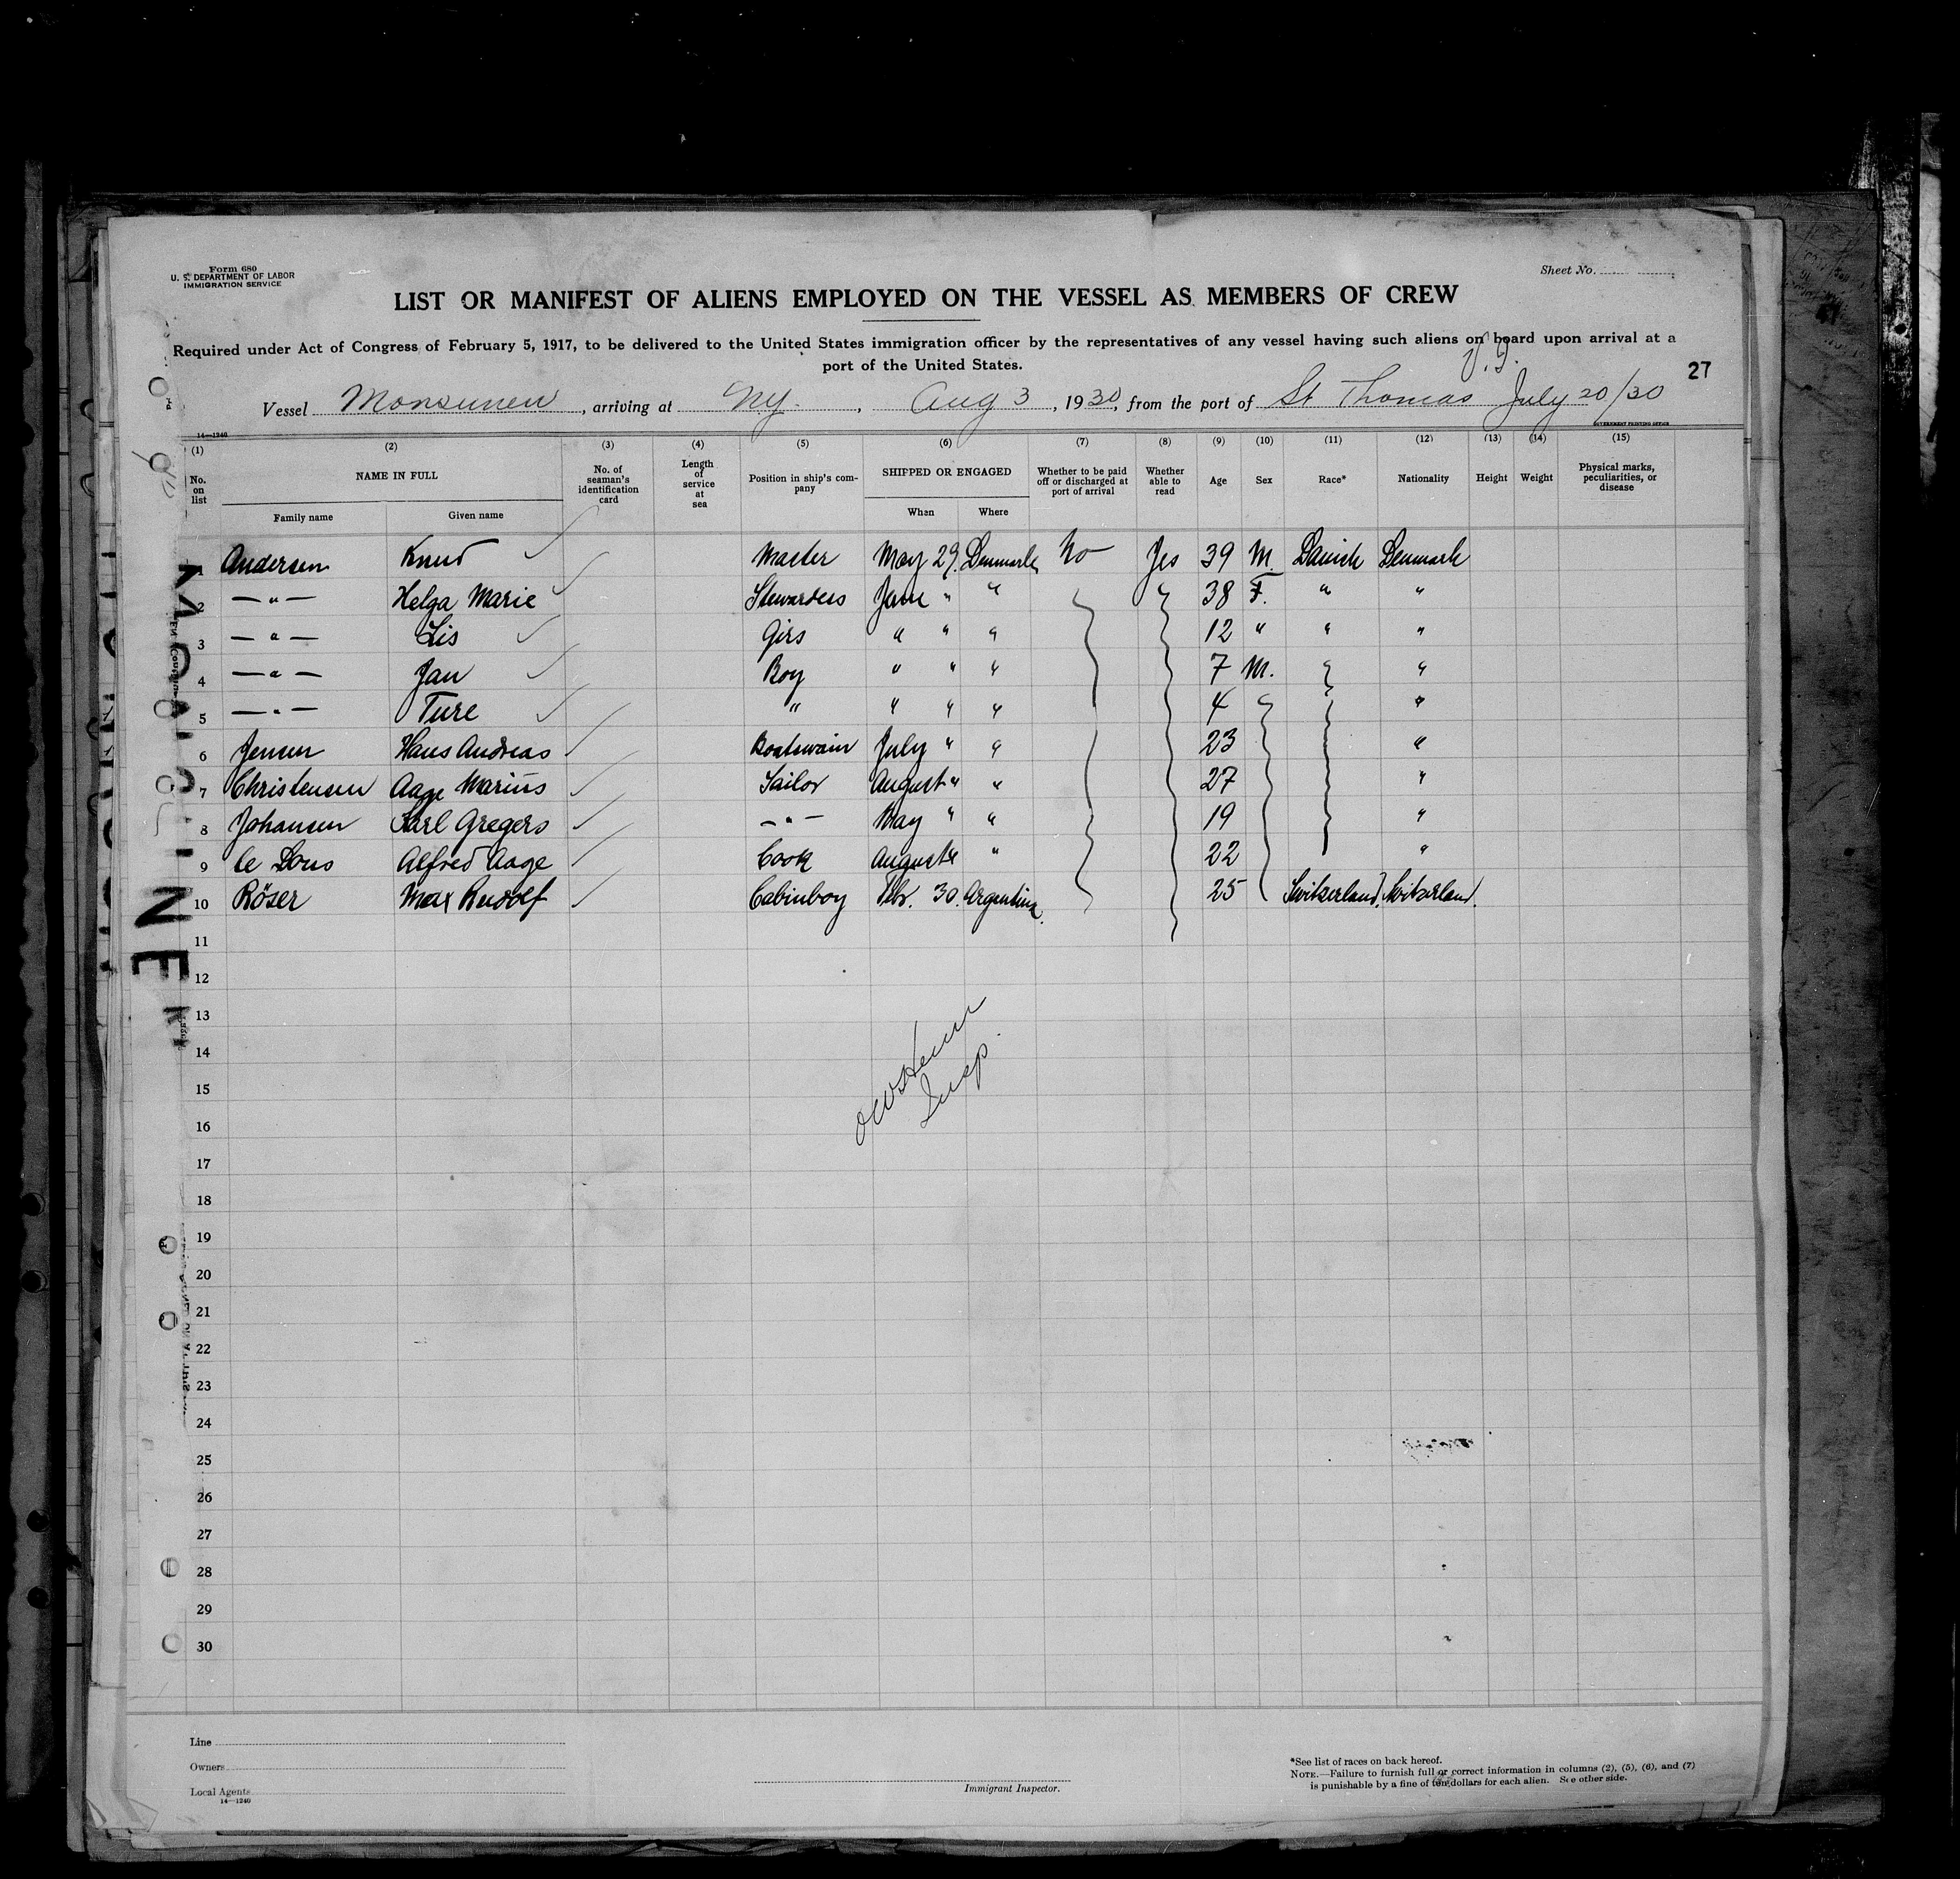 Form 680
U. S. DEPARTMENT OF LABOR
IMMIGRATION SERVICE
Sheet No.
LIST OR MANIFEST OF ALIENS EMPLOYED ON THE VESSEL AS MEMBERS OF CREW
Required under Act of Congress of February 5, 1917, to be delivered to the United States immigration officer by the representatives of any vessel having such aliens on board upon arrival at a
port of the United States.
V.I.
27
Vessel Monsunen, arriving at NY., Aug 3, 1930, from the port of St Thomas July 20/30
14—1240
GOVERNMENT PRINTING OFFICE
(1) (2) (3) (4) (5) (6) (7) (8) (9) (10) (11) (12) (13) (14) (15)
No. on list NAME IN FULL No. of seaman's identification card Length of service at sea Position in ship's company SHIPPED OR ENGAGED Whether to be paid off or discharged at port of arrival Whether able to read Age Sex Race* Nationality Height Weight Physical marks, peculiarities, or disease
Family name Given name When Where
1 Andersen Knud Master May 29. Denmark No Yes 39 M. Danish Denmark
2 — " — Helga Marie Stewardess June " " 38 F. " "
3 — " — Lis Girs " " " 12 " " "
4 — " — Jan Boy " " " 7 M. "
5 — " — Ture " " " " 4 "
6 Jensen Hans Andreas Boatswain July " " 23 "
7 Christensen Aage Marius Sailor August " " 27 "
8 Johansen Karl Gregers — " — May " " 19 "
9 le Dous Alfred Aage Cook August " " 22 "
10 Röser Max Rudolf Cabinboy Febr. 30. Argentina. 25 Switzerland. Switzerland.
11
12
13
14
15
16
17
18
19
20
21
22
23
24
25
26
27
28
29
30
Insp.
Line
Owners
Local Agents
14—1240
Immigrant Inspector.
*See list of races on back hereof.
NOTE.—Failure to furnish full or correct information in columns (2), (5), (6), and (7)
is punishable by a fine of ten dollars for each alien. See other side.